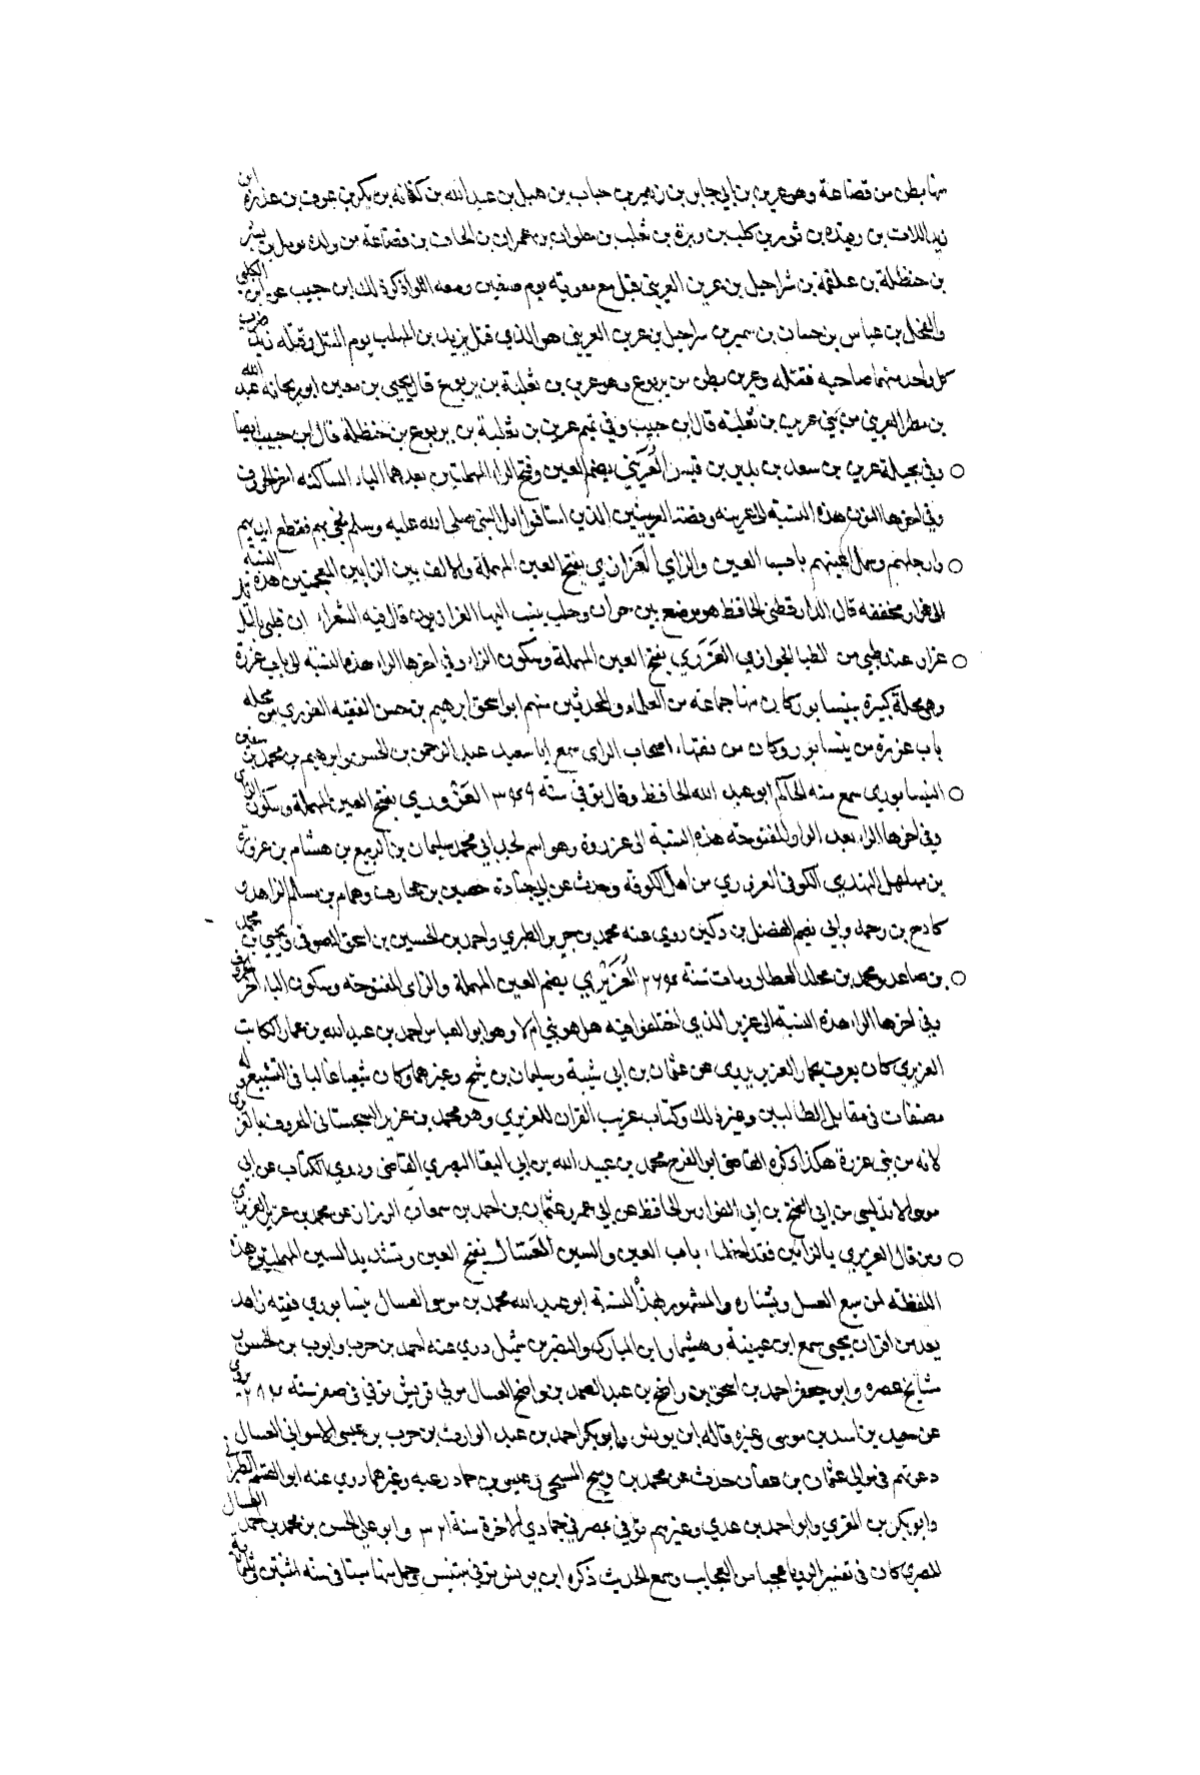 منها بطن من قضاعة وهو عرين بن ابي جابر بن زهير بن جناب بن هبل بن عبد الله بن كنانه بن بكر بن عوف بن عذرة ابن
زيد اللات بن رفيده بن ثور بن كلب بن وبرة بن ثعلب بن حلوان بن عمران بن الحاف بن قضاعة من ولده بن بشر
بن حنظلة بن علقمة بن شراحيل بن عرين العريني قتل مع معوية يوم صفين ومعه اللواء ذكر ذلك ابن حبيب عن ابن الكلبي
والفحل بن عياش بن حسان بن سمير بن شراحيل بن عرين العريني هو الذي قتل يزيد بن المهلب يوم وقتله يزيد ضرب
كل واحد منهما صاحبه فقتله وعرين بطن من يربوع وهو عرين بن ثعلبة بن يربوع قال يحيى بن معين ابو ريحانة عبد الله
بن مطر العريني من بني عرين بن ثعلبة قال ابن حبيب وفي تميم عرين بن ثعلبة بن يربوع بن حنظلة قال ابن حبيب ايضا
وفي بجيلة عرين بن سعد بن نذير بن قيس العُرَيني بضم العين وفتح الراء المهملتين بعدهما الياء الساكنه اخر الحروف
وفي اخرها النون هذه النسبة الى عرينه وقصة العرنيين الذين استاقوا ابل النبي صلى الله عليه وسلم فجي بهم فقطع ايديهم
وارجلهم وسمل اعينهم باب العين والزاي العَزازي بفتح العين المهملة والالف بين الزايين المعجمتين هذه النسبة
الى عزاز مخففه قال الدارقطني الحافظ هو موضع بين حران وحلب ينسب اليها العزازيون قال فيه الشعراء ان قلبي بالتل تل
عزاز عند ظبي من الظبا الجوازي العَزْرَي بفتح العين المهملة وسكون الزاء وفي اخرها الراء هذه النسبة الى باب عزرة
وهي محلة كبيرة بنيسابور كان منها جماعة من العلماء والمحدثين منهم ابو اسحق ابرهيم بن حسن الفقيه العزري من محله
باب عزرة من نيسابور وكان من فقهاء اصحاب الراي سمع ابا سعيد عبد الرحمن بن الحسن وابرهيم بن محمد بن سفين
النيسابوري سمع منه الحاكم ابو عبد الله الحافظ وقال توفي سنة ٣٤٩ العَزْوري بفتح العين المهملة وسكون الزاي
وفي اخرها الراء بعد الواو المفتوحة هذه النسبة الى عزورة وهو اسم لجد ابي محمد سليمان بن الربيع بن هشام بن عزورة
بن مهلهل النهدي الكوفي العزوري من اهل الكوفة وحدث عن ابي جنادة حصين بن مخارق وهمام بن مسلم الزاهد و
كادح بن رحمه وابي نعيم الفضل بن دكين روى عنه محمد بن جرير الطبري واحمد بن الحسين بن اسحق الصوفي ويحيى بن محمد
بن صاعد ومحمد بن مخلد العطار ومات سنة العُزَيْري بضم العين المهملة والزاي المفتوحة وسكون الياء اخر الحروف
وفي اخرها الراء هذه النسبة الى عزير الذي اختلفوا فيه هل هو نبي ام لا وهو ابو العباس احمد بن عبد الله بن عمار الكاتب
العزيري كان يعرف بحمار العزير يروى عن عثمان بن ابي شيبة وسليمان بن شيخ وغيرهما وكان شيعيا غاليا في التشيع له
مصنفات في مقاتل الطالبين وغير ذلك وكتاب غريب القران للعزيري وهو محمد بن عزير السجستاني المعروف بالعزيري
لانه من بني عزرة هكذا ذكره القاضي ابو الفرج محمد بن عبيد الله بن ابي البقا البصري القاضي وروى الكتاب عن ابي
موسى الاندلسي من ابي الفتح بن ابي الفوارس الحافظ عن ابي عمرو عثمان بن احمد بن سمعان الرزاز عن محمد بن عزير العزيري
ومن قال العزيزي بالزائين فقد اخطاء باب العين والسين العَسّال بفتح العين وتشديد السين المهملتين هذه
اللفظة لمن يبيع العسل ويشتاره والمشهور بهذه النسبة ابو عبد الله محمد بن موسى العسال نيسابوري فقيه زاهد
يعد من اقران يحيى سمع ابن عيينة وهشيما وابن المبارك والنضر بن شميل روى عنه احمد بن حرب وايوب بن الحسن و
مشايخ عصره وابو جعفر احمد بن اسحق بن واضح بن عبد الصمد بن واضح العسال مولى قريش توفي في صفر سنة ٢٨٧ يروي
عن سعيد بن اسد بن موسى وغيره قاله ابن يونس وابو بكر احمد بن عبد الوارث بن جرير بن عيسى الاسواني العسال
دعوتهم في موالي عثمان بن عفان حدث عن محمد بن رمح وعيسى بن حماد زغبه وغيرهما روى عنه ابو القسم الطبراني
وابو بكر بن المقري وابو احمد بن عدي وغيرهم توفي بمصر في جمادي الاخرة سنة ٣٢١ وابو علي الحسن بن محمد بن احمد العسال
المصري كان في تفسير الرويا عجبا من العجايب وسمع الحديث ذكره ابن يونس توفي بتنيس وحمل منها ميتا في سنه اثنتين وثلثماية